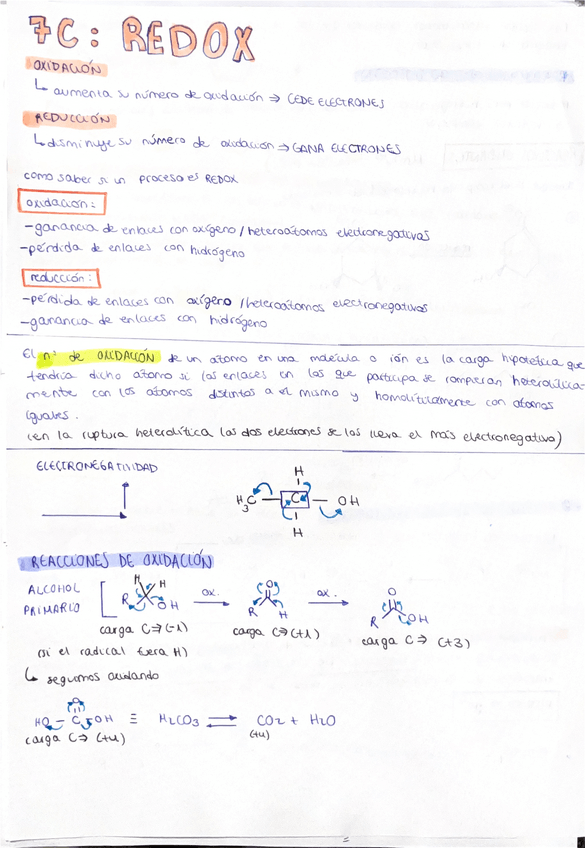 7C: REDOX
OXIDACIÓN
↳ aumenta su número de oxidación ⇒ CEDE ELECTRONES
REDUCCIÓN
↳ disminuye su número de oxidación ⇒ GANA ELECTRONES
como saber si un proceso es REDOX
oxidación:
-ganancia de enlaces con oxígeno/heteroátomos electronegativos
-pérdida de enlaces con hidrógeno
reducción:
-pérdida de enlaces con oxígeno/heteroátomos electronegativos
-ganancia de enlaces con hidrógeno
El nº de OXIDACIÓN de un átomo en una molécula o ión es la carga hipotética que
tendría dicho átomo si los enlaces en los que participa se rompieran heterolítica-
mente con los átomos distintos a el mismo y homolíticamente con átomos
iguales.
(en la ruptura heterolítica los dos electrones se los lleva el más electronegativo)
ELECTRONEGATIVIDAD
H
H3C — C — OH
H
REACCIONES DE OXIDACIÓN
ALCOHOL PRIMARIO
H H
R OH
ox.
O
R H
ox.
O
R OH
carga C⇒(-1)
carga C⇒(+1)
carga C⇒ (+3)
(si el radical fuera H)
↳ seguimos oxidando
O
HO — C — OH ≡ H2CO3 ⇌ CO2 + H2O
carga C⇒ (+4)
(+4)